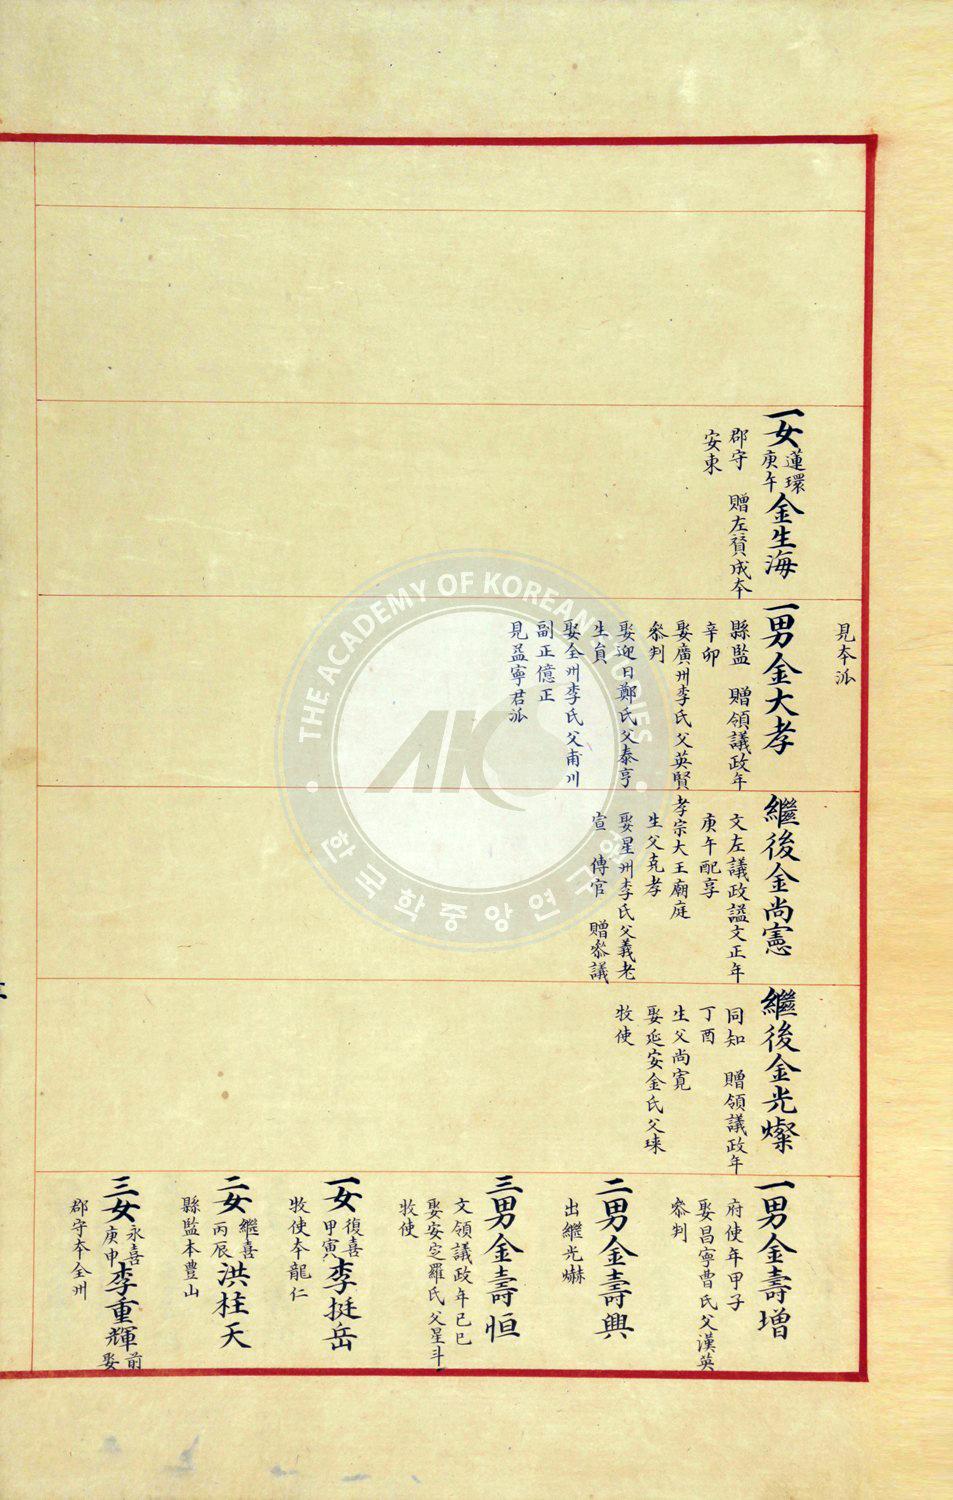 見本派
一女 蓮環 庚午 金生海
郡守 贈左贊成本
安東
一男金大孝
縣監 贈領議政年
辛卯
娶廣州李氏父英賢
叅判
娶迎日鄭氏父泰亨
生員
娶全州李氏父甫川
副正億正
見益寧君派
繼後金尚憲
文左議政謚文正年
庚午配享
孝宗大王廟庭
生父克孝
娶星州李氏父義老
宣傳官 贈叅議
繼後金光燦
同知 贈領議政年
丁酉
生父尚寬
娶延安金氏父琜
牧使
一男金壽增
府使年甲子
娶昌寧曹氏父漢英
叅判
二男金壽興
出繼光爀
三男金壽恒
文領議政年己巳
娶安定羅氏父星斗
牧使
一女 復喜 甲寅 李挺岳
牧使本龍仁
二女 繼喜 丙辰 洪柱天
縣監本豊山
三女 永喜 庚申 李重輝 前娶
郡守本全州
THE ACADEMY OF KOREAN STUDIES
AKS
한국학중앙연구원